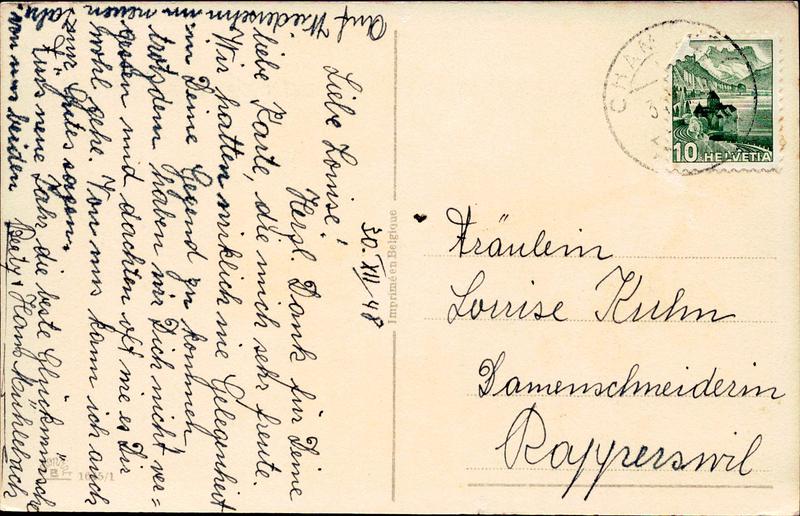 30. XII 48
Liebe Louise!
Herzl. Dank für Deine
liebe Karte, die mich sehr freute.
Wir hatten wirklich nie Gelegenheit
in Deine Gegend zu kommen
trotzdem haben wir Dich nicht ver-
gessen und dachten oft wie es Dir
wohl gehe. Von uns kann ich auch
nur Gutes sagen.
Fürs neue Jahr die beste Glückwünsche
von uns beiden Betty + Hans Mühlebach
Auf Wiedersehn im neuen Jahr
Imprimé en Belgique
1015/1
CHAM
10 HELVETIA
Fräulein
Louise Kuhn
Damenschneiderin
Rapperswil